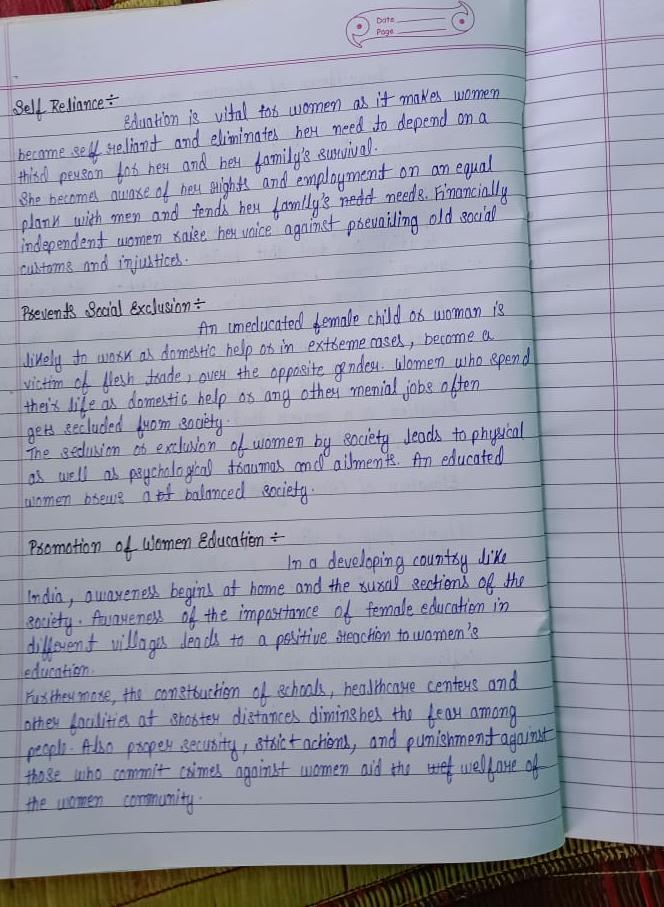 Date
Page
Self Reliance ÷
Eduation is vital for women as it makes women
become self reliant and eliminates her need to depend on a
third person for her and her family's survival.
She becomes aware of her rights and employment on an equal
plank with men and fends her family's nedd needs. Financially
independent women raise her voice against prevailing old social
customs and injustices.
Prevents Social Exclusion ÷
An uneducated female child or woman is
likely to work as domestic help or in extreme cases, become a
victim of flesh trade, over the opposite gender. Women who spend
their life as domestic help or any other menial jobs often
gets secluded from society.
The seclusion or exclusion of women by society leads to physical
as well as psychological traumas and ailments. An educated
women brews a balanced society.
Promotion of Women Education ÷
In a developing country like
India, awareness begins at home and the rural sections of the
society. Awareness of the importance of female education in
different villages leads to a positive reaction to women's
education.
Furthermore, the construction of schools, healthcare centers and
other facilities at shorter distances diminshes the fear among
people. Also proper security, strict actions, and punishment against
those who commit crimes against women aid the wef welfare of
the women community.